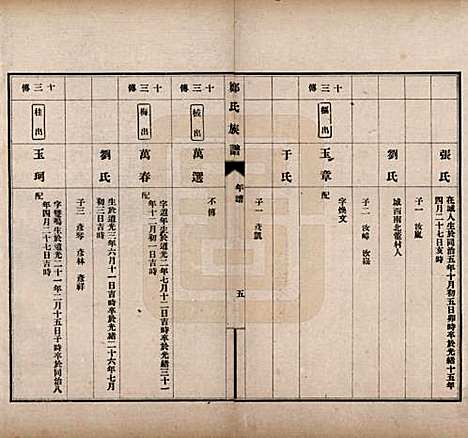 張氏
在城人生於同治五年十月初五日卯時卒於光緒十五年
四月二十七日亥時
子一 汝嵐
劉氏
城西南北蠻村人
子二 汝峰 汝嶺
十三傳
樞出
玉章
字煥文
配
于氏
子一 彥凱
鄭氏族譜
年譜
五
十三傳
棫出
萬選
不傳
十三傳
梅出
萬春
字道年生於道光二年七月十二日吉時卒於光緒三十一
年十二月初一日吉時
配
劉氏
生於道光三年六月十一日吉時卒於光緒二十六年七月
初三日吉時
子三 彥琴 彥林 彥祥
十三傳
桂出
玉珂
字雙鳴生於道光二十一年二月十五日子時卒於同治八
年四月二十七日吉時
配